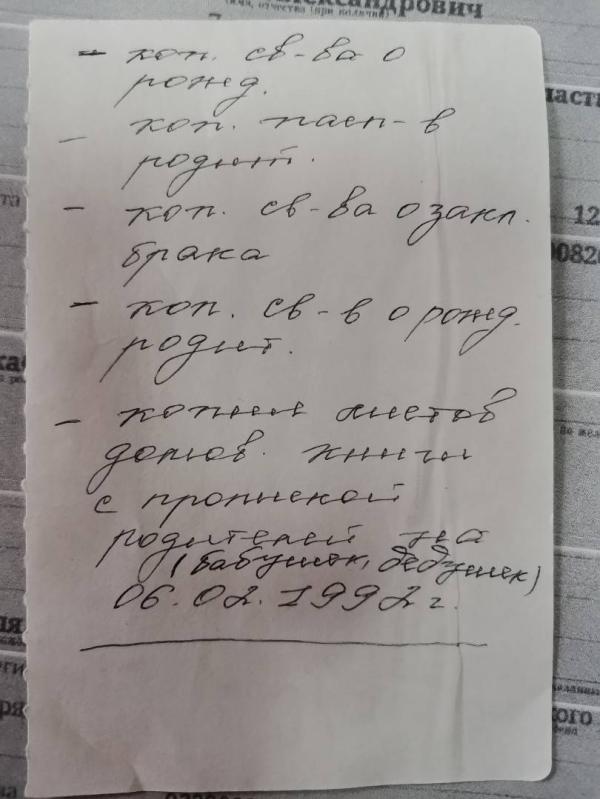 лександрович
(имя, отчество (при наличии)
– коп. св-ва о
рожд.
– коп. пасп-в
родит.
– коп. св-ва о закл.
брака
– коп. св-в о рожд.
родит.
– копии листов
домов. книги
с пропиской
родителей на
(бабушек, дедушек)
06.02.1992 г.
ласти
12
0082